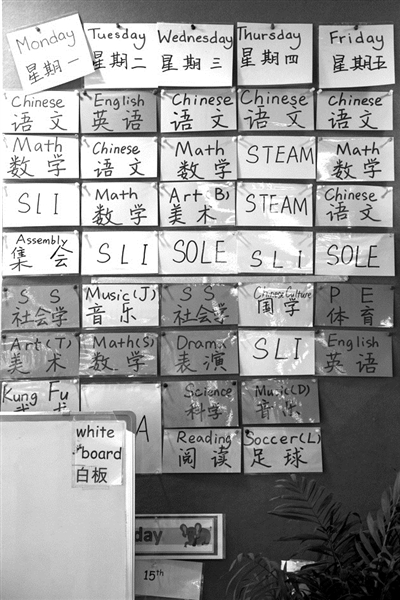 Monday
星期一
Tuesday
星期二
Wednesday
星期三
Thursday
星期四
Friday
星期五
Chinese
语文
English
英语
Chinese
语文
Chinese
语文
Chinese
语文
Math
数学
Chinese
语文
Math
数学
STEAM
Math
数学
SLI
Math
数学
Art(B)
美术
STEAM
Chinese
语文
Assembly
集会
SLI
SOLE
SLI
SOLE
S S
社会学
Music(J)
音乐
S S
社会学
Chinese Culture
国学
P E
体育
Art(T)
美术
Math(S)
数学
Drama
表演
SLI
English
英语
Kung Fu
A
Science
科学
Music(D)
音乐
Reading
阅读
Soccer(L)
足球
white
board
白板
day
15th